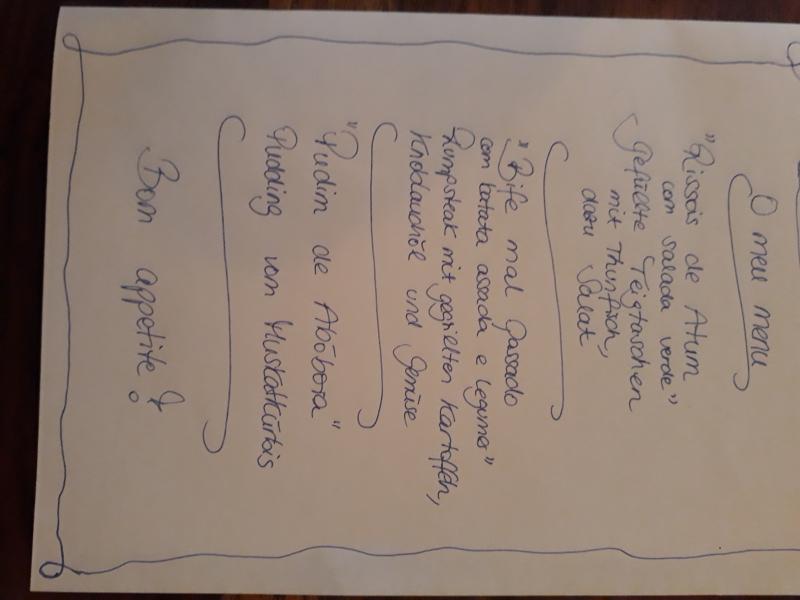 O meu menu
"Rissois de Atum
com salada verde"
Gefüllte Teigtaschen
mit Thunfisch,
dazu Salat
"Bife mal Passado
com batata assada e legumes"
Rumpsteak mit gegrillten Kartoffeln,
Knoblauchöl und Gemüse
"Pudim de Abõbora"
Pudding vom Muskatkürbis
Bom appetite!